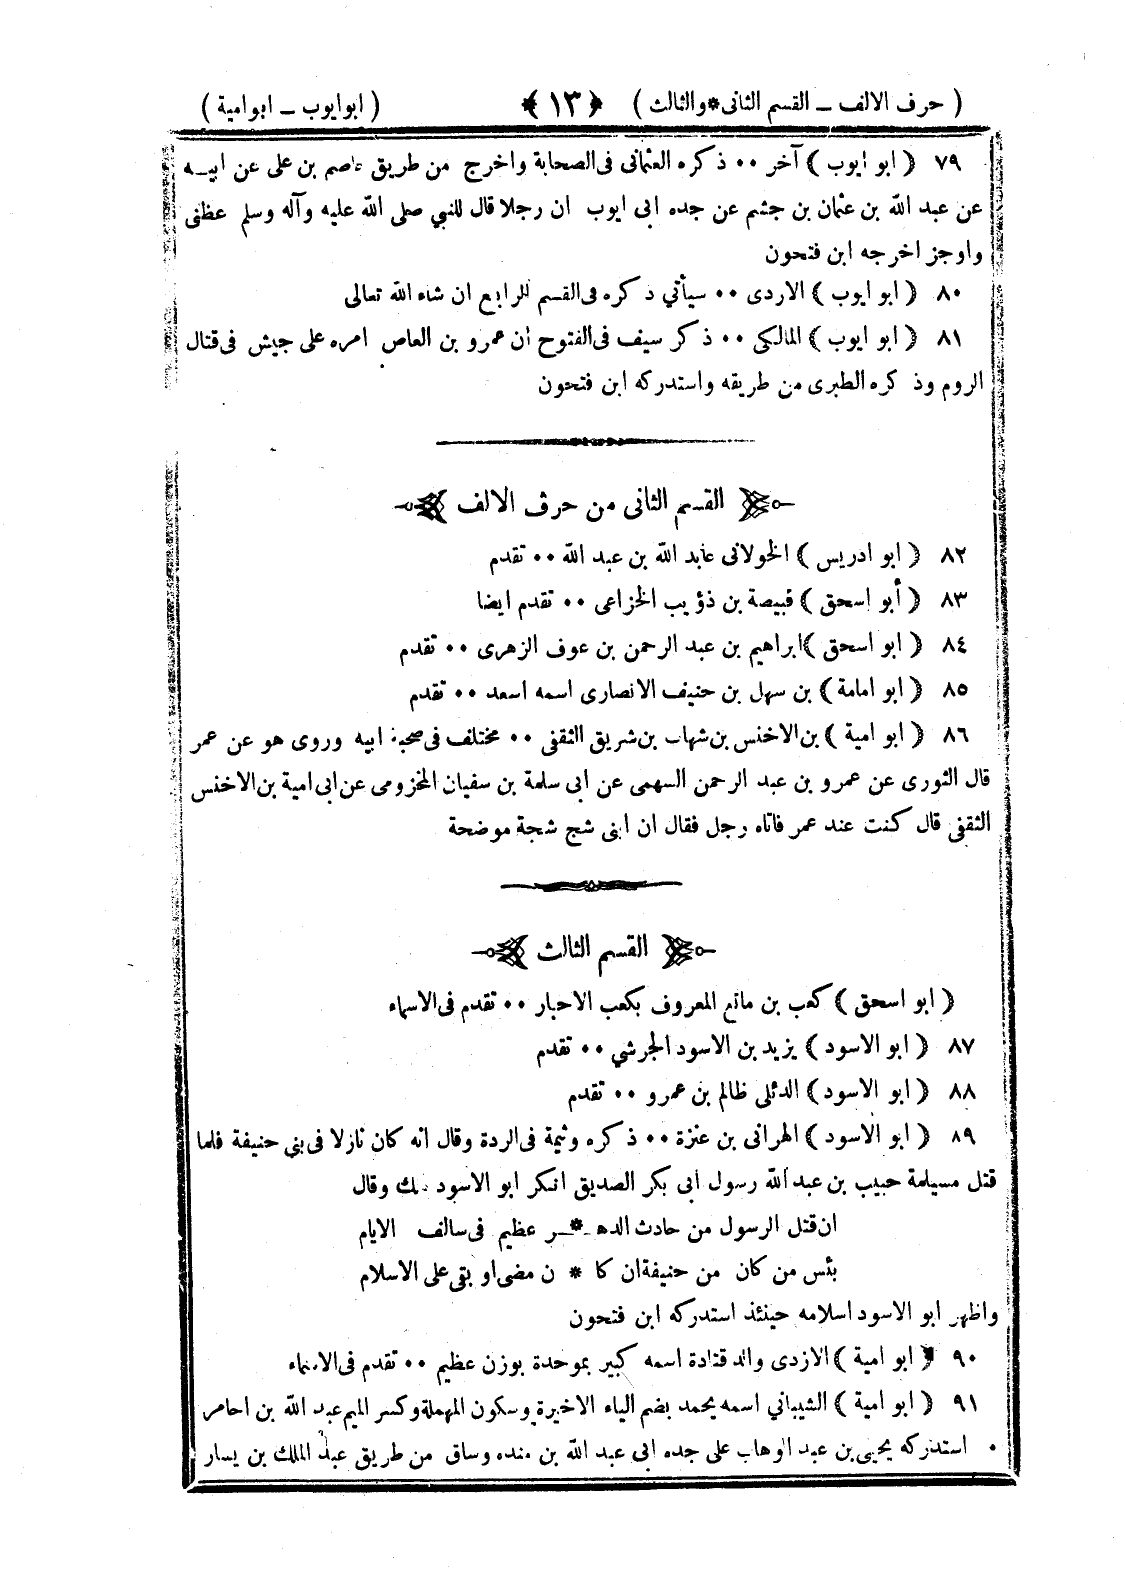 ( حرف الالف – القسم الثانى * والثالث ) ﴿ ١٣ ﴾ ( ابوايوب – ابوامية )
٧٩ ( ابو ايوب ) آخر ٠٠ ذكره العثمانى فى الصحابة واخرج من طريق عاصم بن على عن ابيه
عن عبد الله بن عثمان بن جشم عن جده ابى ايوب ان رجلا قال للنبي صلى الله عليه وآله وسلم عظنى
واوجز اخرجه ابن فتحون
٨٠ ( ابو ايوب ) الازدى ٠٠ سيأتي ذكره فى القسم الرابع ان شاء الله تعالى
٨١ ( ابو ايوب ) المالكى ٠٠ ذكر سيف فى الفتوح ان عمرو بن العاص امره على جيش فى قتال
الروم وذكره الطبرى من طريقه واستدركه ابن فتحون
القسم الثانى من حرف الالف
٨٢ ( ابو ادريس ) الخولانى عايد الله بن عبد الله ٠٠ تقدم
٨٣ ( أبو اسحق ) قبيصة بن ذؤيب الخزاعى ٠٠ تقدم ايضا
٨٤ ( ابو اسحق ) ابراهيم بن عبد الرحمن بن عوف الزهرى ٠٠ تقدم
٨٥ ( ابو امامة ) بن سهل بن حنيف الانصارى اسمه اسعد ٠٠ تقدم
٨٦ ( ابو امية ) بن الاخنس بن شهاب بن شريق الثقفى ٠٠ مختلف فى صحبة ابيه وروى هو عن عمر
قال الثورى عن عمرو بن عبد الرحمن السهمى عن ابي سلمة بن سفيان المخزومى عن ابى امية بن الاخنس
الثقفى قال كنت عند عمر فاتاه رجل فقال ان ابنى شج شجة موضحة
القسم الثالث
( ابو اسحق ) كعب بن ماتع المعروف بكعب الاحبار ٠٠ تقدم فى الاسماء
٨٧ ( ابو الاسود ) يزيد بن الاسود الجرشي ٠٠ تقدم
٨٨ ( ابو الاسود ) الدئلى ظالم بن عمرو ٠٠ تقدم
٨٩ ( ابو الاسود ) الهرانى بن عنزة ٠٠ ذكره وثيمة فى الردة وقال انه كان نازلا فى بنى حنيفة فلما
قتل مسيلمة حبيب بن عبد الله رسول ابى بكر الصديق انكر ابو الاسود ذلك وقال
ان قتل الرسول من حادث الده * ر عظيم فى سالف الايام
بئس من كان من حنيفة ان كا * ن مضى او بقى على الاسلام
واظهر ابو الاسود اسلامه حينئذ استدركه ابن فتحون
٩٠ ( ابو امية ) الازدى والد قتادة اسمه كبير بموحدة بوزن عظيم ٠٠ تقدم فى الاسماء
٩١ ( ابو امية ) الشيباني اسمه يحمد بضم الياء الاخيرة وسكون المهملة وكسر الميم عبد الله بن احامر
٠ استدركه يحيى بن عبد الوهاب على جده ابى عبد الله بن منده وساق من طريق عبد الملك بن يسار